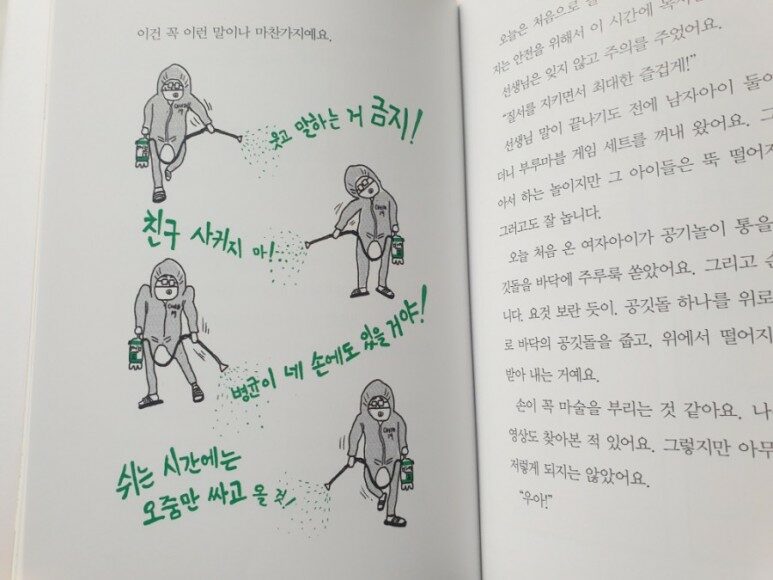 이건 꼭 이런 말이나 마찬가지예요.
웃고 말하는 거 금지!
친구 사귀지 마!
병균이 네 손에도 있을거야!
쉬는 시간에는
오줌만 싸고 올 것!
오늘은 처음으로
지는 안전을 위해서 이 시간에
선생님은 잊지 않고 주의를 주었어요.
“질서를 지키면서 최대한 즐겁게!”
선생님 말이 끝나기도 전에 남자아이 둘이
더니 부루마블 게임 세트를 꺼내 왔어요. 그
아서 하는 놀이지만 그 아이들은 뚝 떨어져
그러고도 잘 놉니다.
오늘 처음 온 여자아이가 공기놀이 통을
깃돌을 바닥에 주루룩 쏟았어요. 그리고 손
니다. 요것 보란 듯이. 공깃돌 하나를 위로
로 바닥의 공깃돌을 줍고, 위에서 떨어지
받아 내는 거예요.
손이 꼭 마술을 부리는 것 같아요. 나
영상도 찾아본 적 있어요. 그렇지만 아무
저렇게 되지는 않았어요.
“우아!”